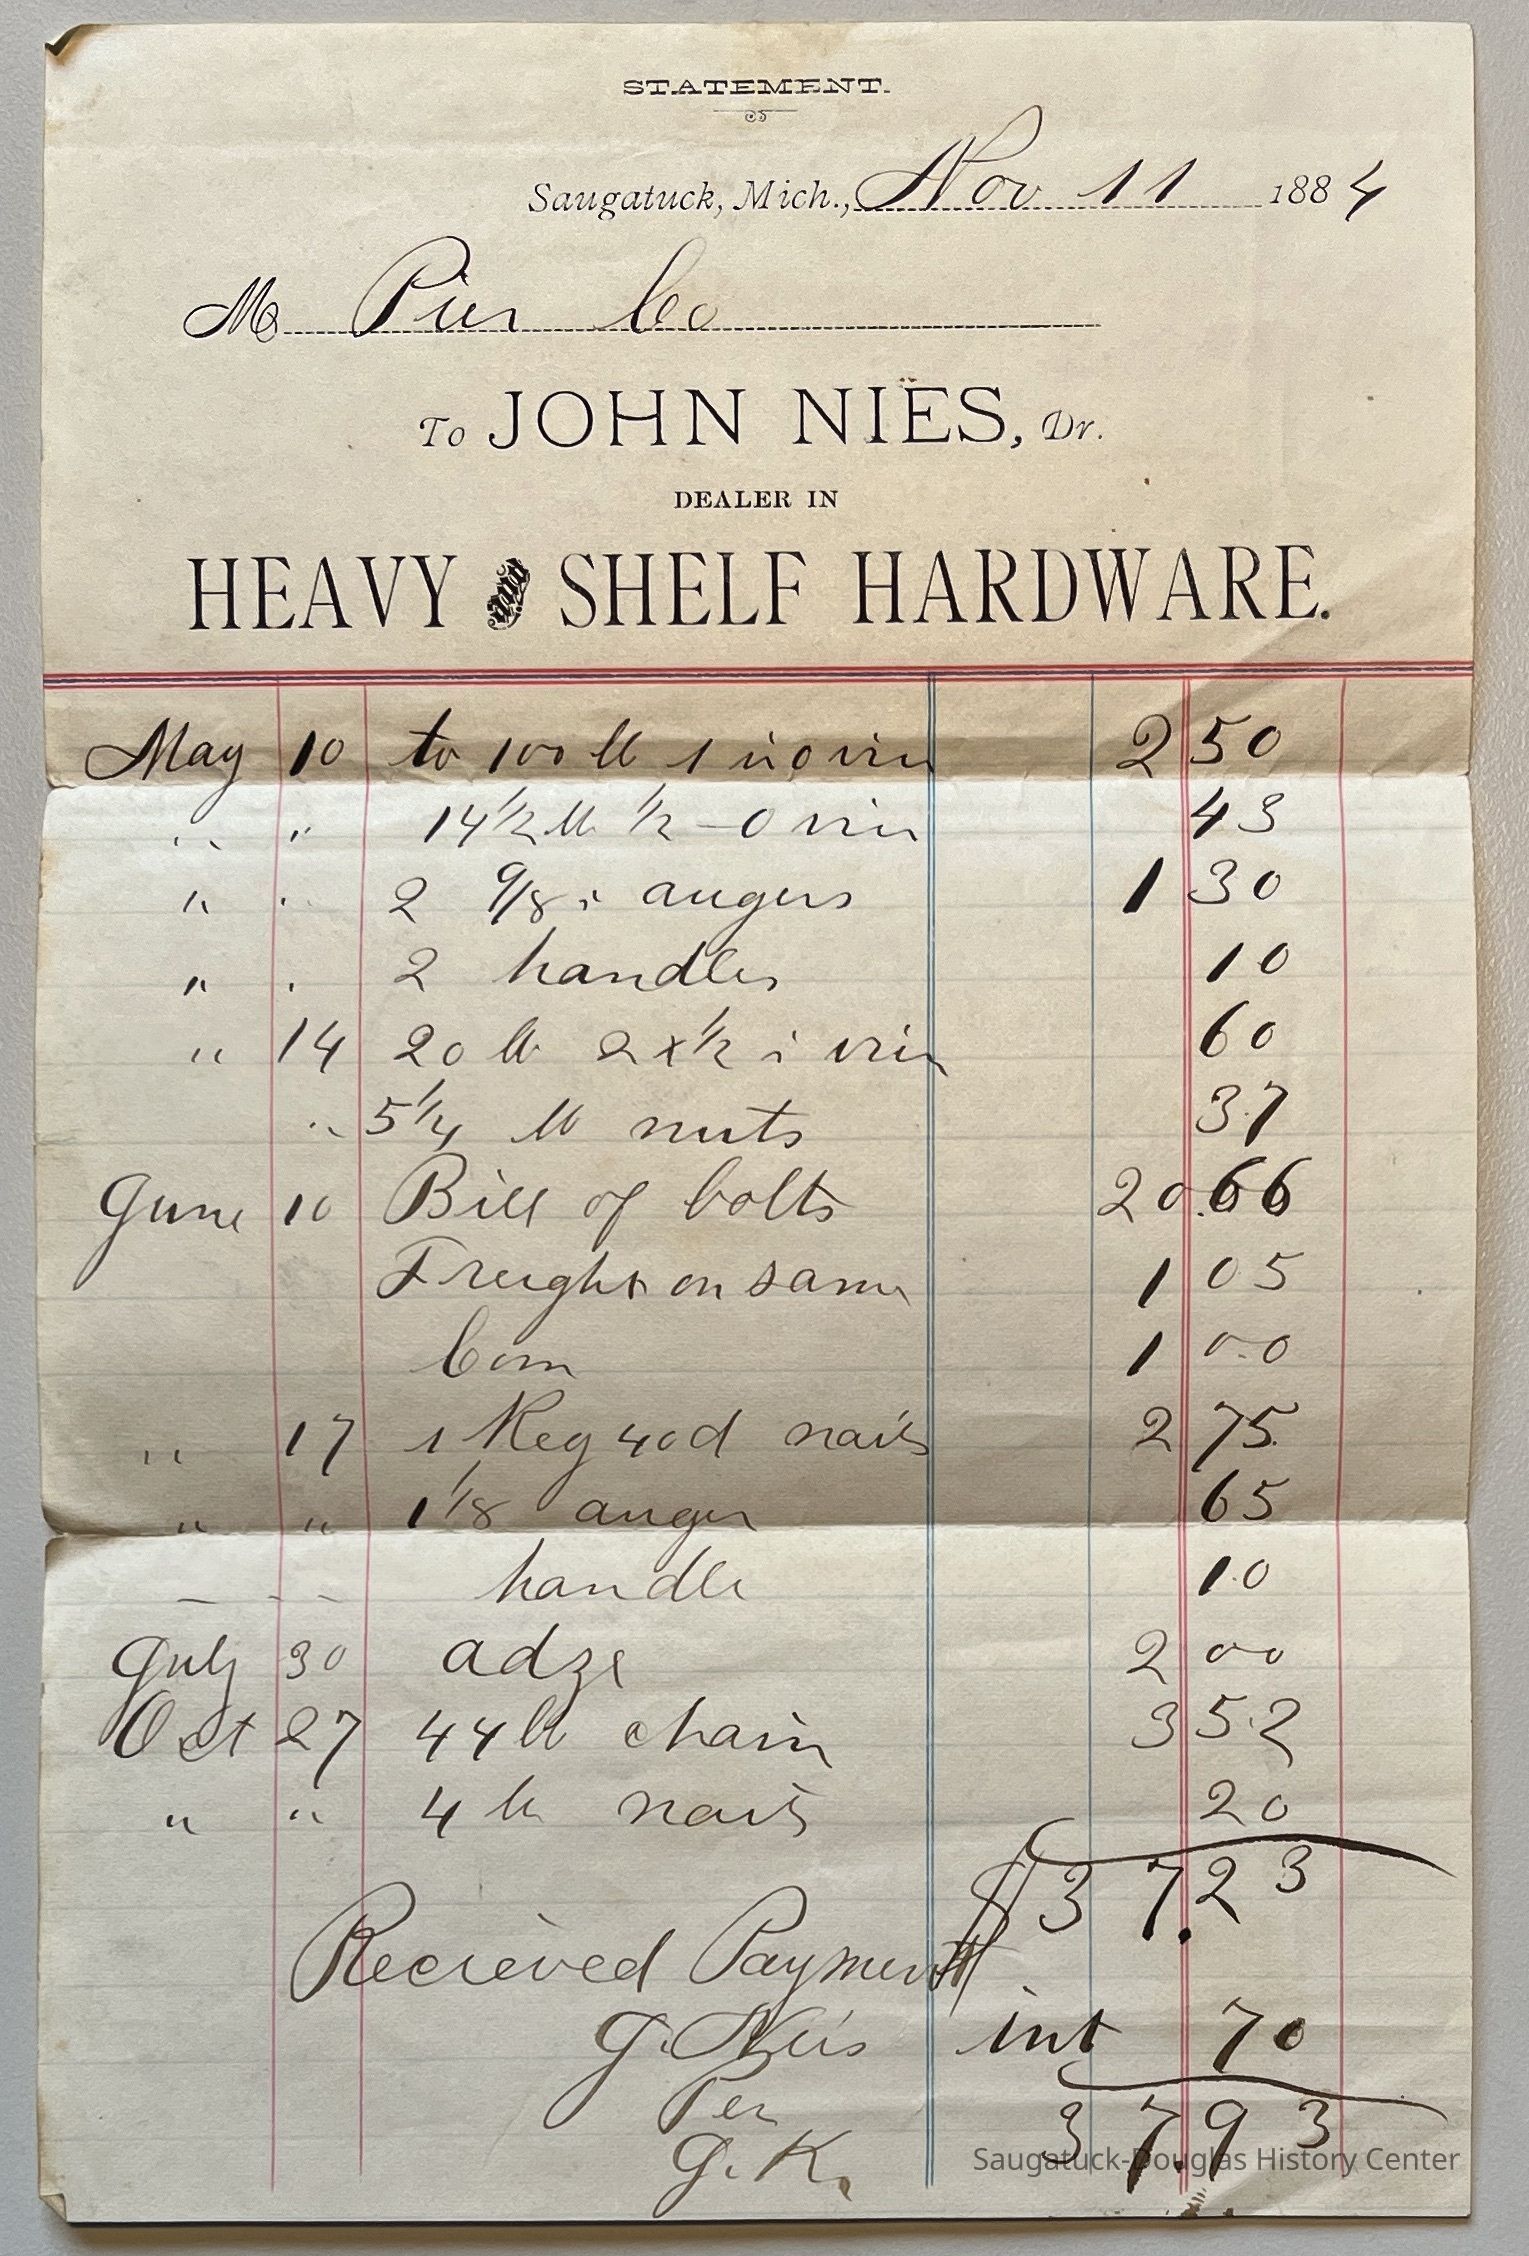 STATEMENT.
Saugatuck, Mich., Nov 11 1884
M Pier Co
To JOHN NIES, Dr.
DEALER IN
HEAVY and SHELF HARDWARE.
May 10 to 100 lb 1 in o iron 2 50
" " 14 1/2 lb 1/2 - o iron 43
" " 2 9/8 i augers 1 30
" " 2 handles 10
" 14 20 lb 2 x 1/2 i iron 60
" 5 1/4 lb nuts 37
June 10 Bill of bolts 20.66
Freight on same 1 05
Com 1 00
" 17 1 Keg 40d nails 2 75
" " 1 1/8 auger 65
" " handle 10
July 30 adze 2 00
Oct 27 44 lb chain 3 52
" " 4 lb nails 20
$37.23
Recieved Payment
J. Nies int 70
Per 37.93
J. K.
Saugatuck-Douglas History Center